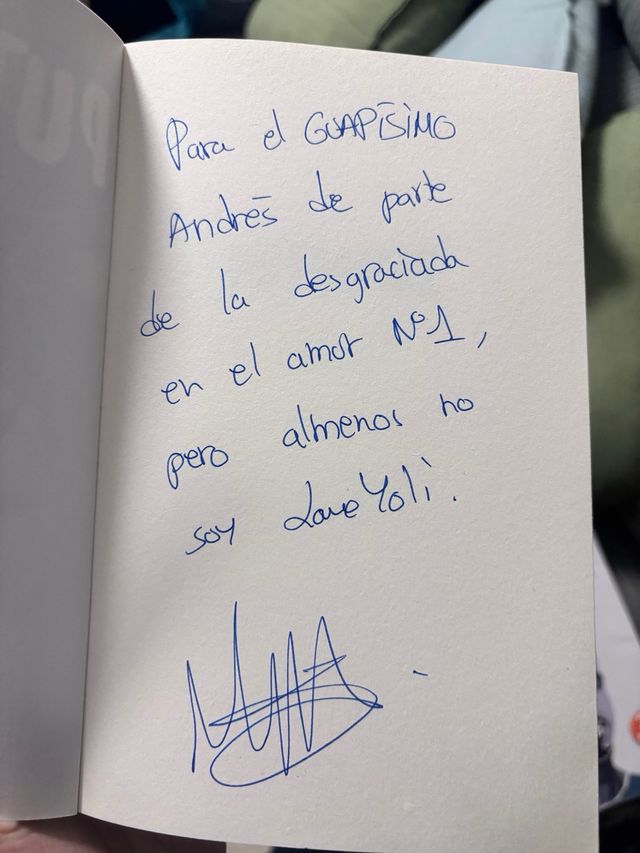 Para el GUAPÍSIMO
Andrés de parte
de la desgraciada
en el amor Nº1,
pero almenos no
soy LoveYoli.